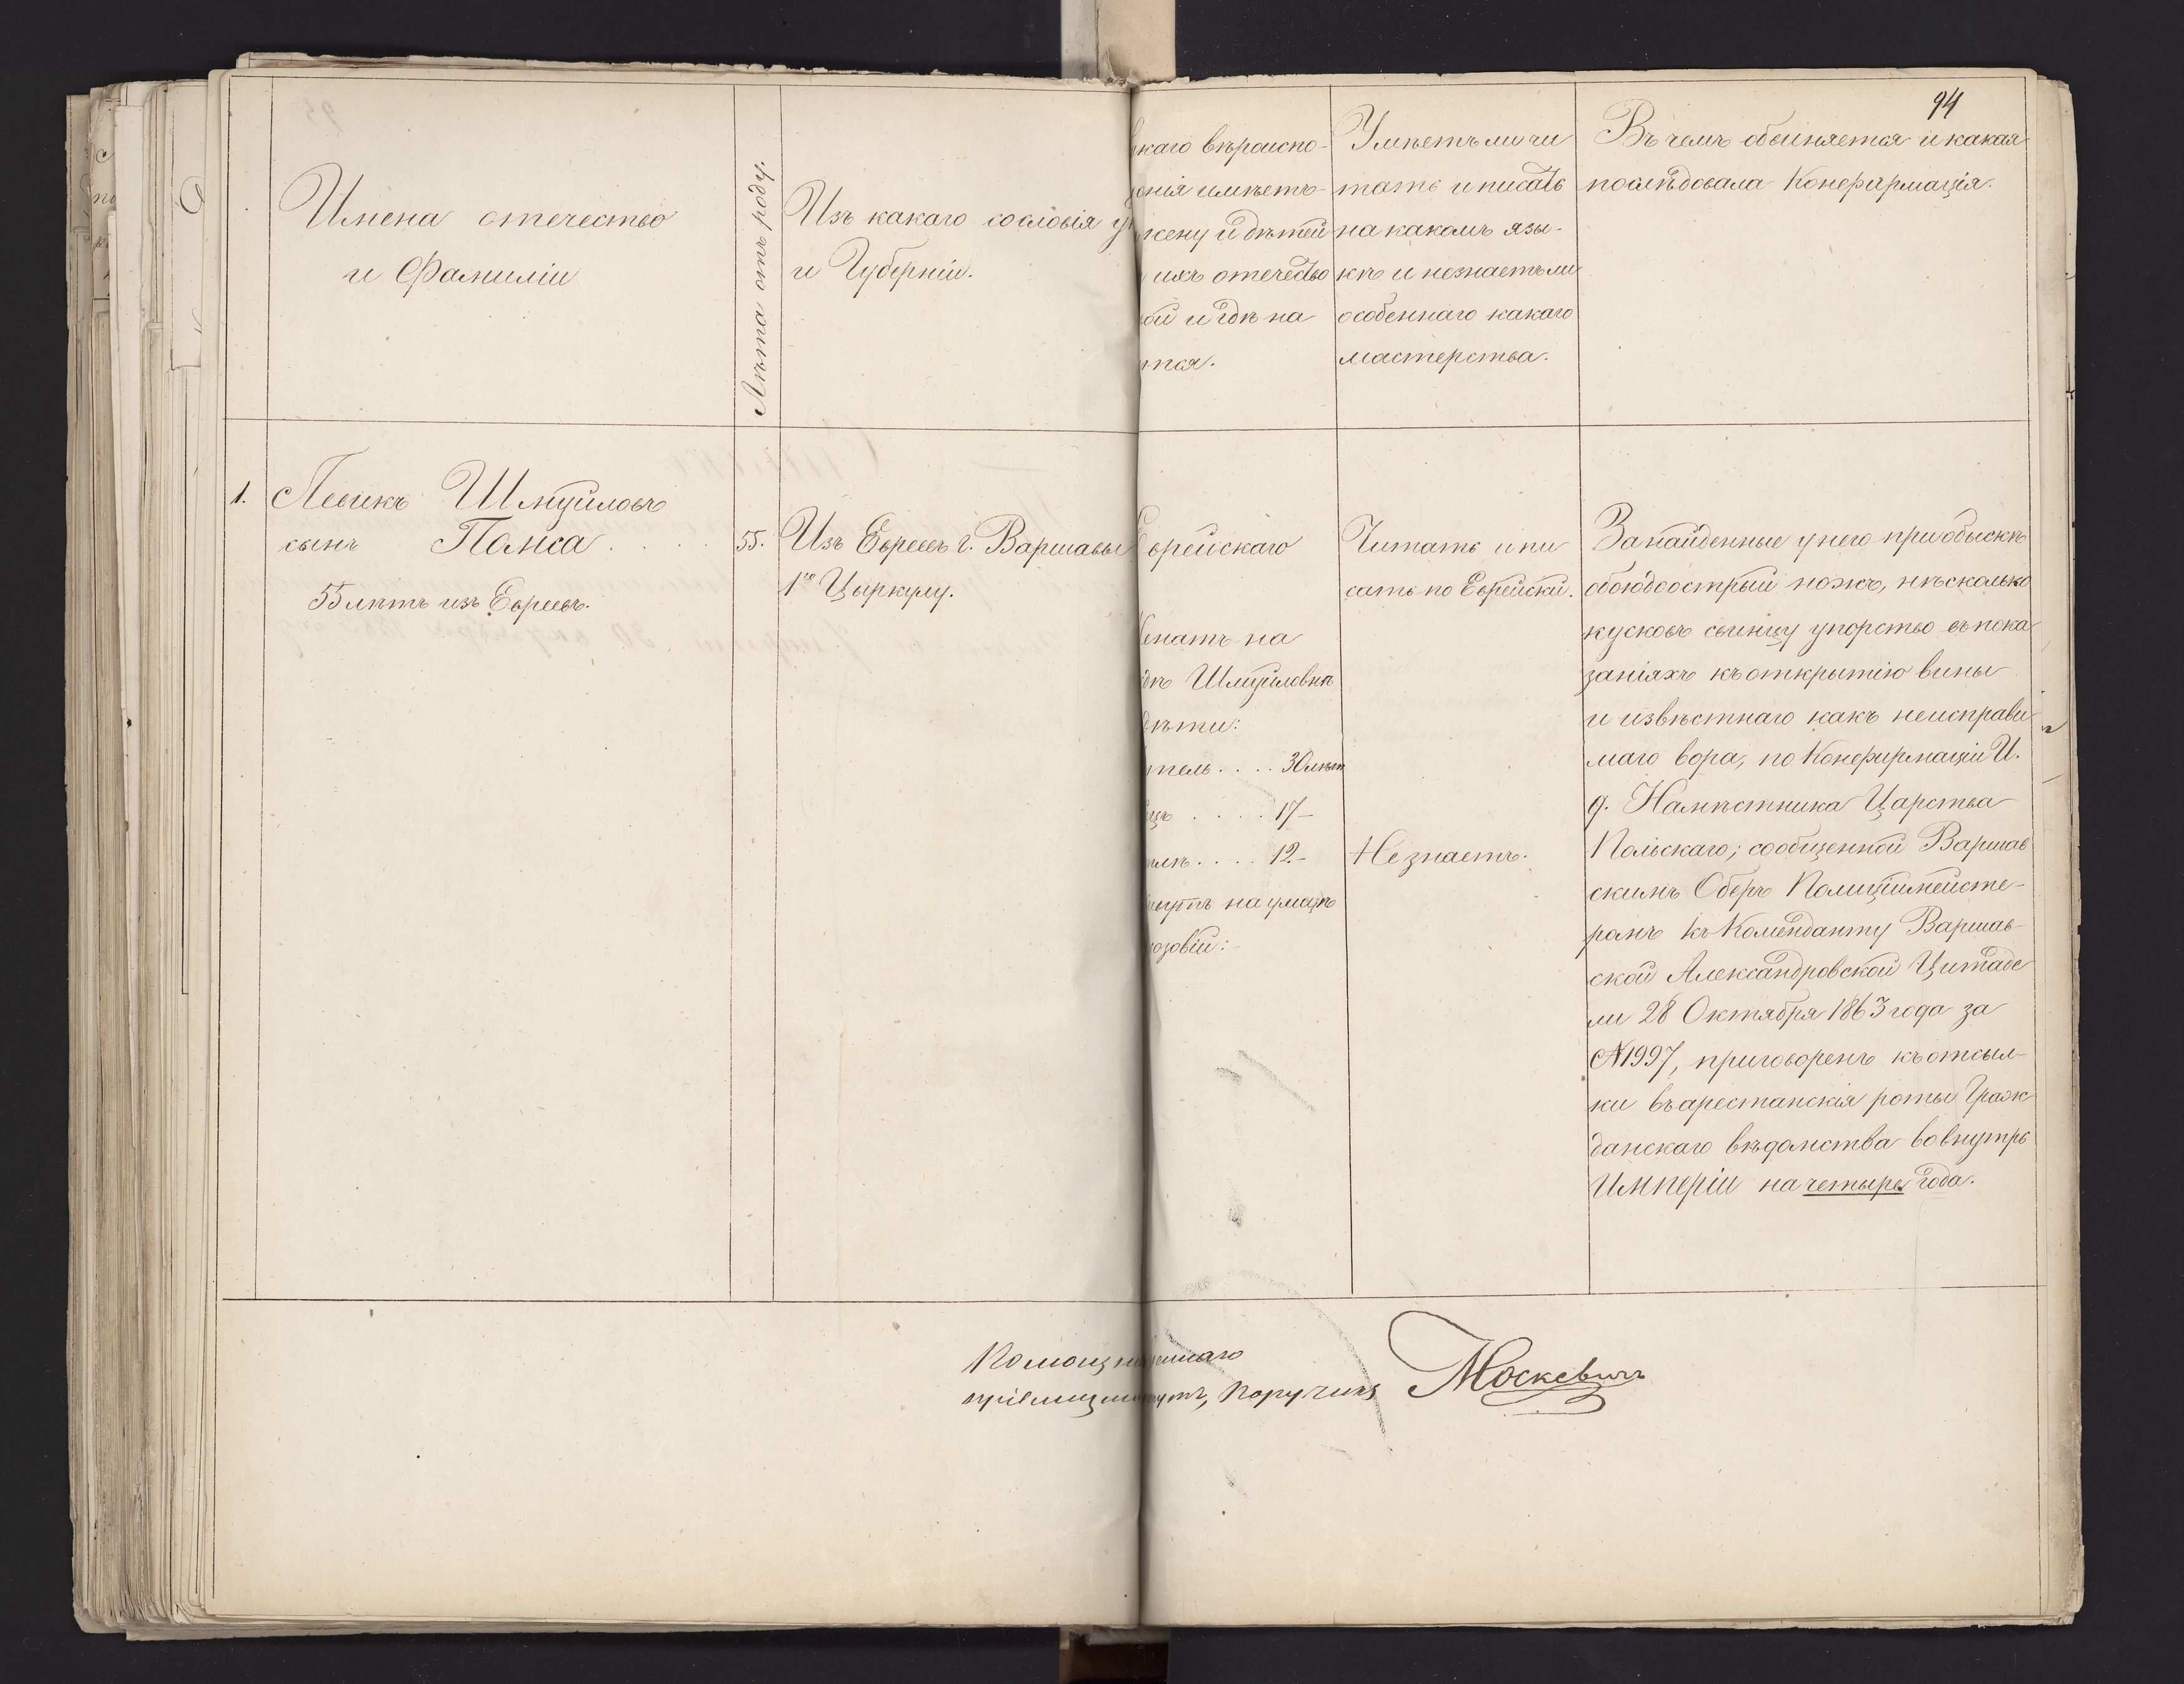 94
Имена отечество
и Фамиліи
Лѣта отъ роду.
Изъ какаго сословія
и Губерніи.
каго вѣроиспо-
имѣетъ
жену и дѣтей
ихъ отечество
и гдѣ на
Умѣетъ ли чи
тать и писать
на какомъ язы-
кѣ и незнаетъ ли
особеннаго какаго
мастерства.
Въ чемъ обвиняется и какая
послѣдовала Конфирмація.
1.
Левикъ Шмуиловъ
сынъ Помса . . . .
55 лѣтъ изъ Евреевъ.
55.
Изъ Евреевъ г. Варшавы
1го Цыркулу.
врейскаго
на
Шмуиловнѣ
дѣти:
. . . . 30 лѣт
. . . . 17 –
. . . . 12 –
на улицѣ
Читать и пи
сать по Еврейски.
Незнаетъ.
За найденные у него при обыскѣ
обоюдоострый ножъ, нѣсколько
кусковъ свинцу упорство въ пока
заніяхъ къ открытію вины
и извѣстнаго какъ неисправи
маго вора, по Конфирмаціи И.
д. Намѣстника Царства
Польскаго; сообщенной Варшав
скимъ Оберъ Полиціймейсте-
ромъ къ Коменданту Варшав-
ской Александровской Цитаде
ли 28 Октября 1863 года за
№ 1997, приговоренъ къ отсыл-
ки въ арестанскія роты Граж
данскаго вѣдомства во внутрь
Имперіи на четыре года.
Поручикъ Москевичъ